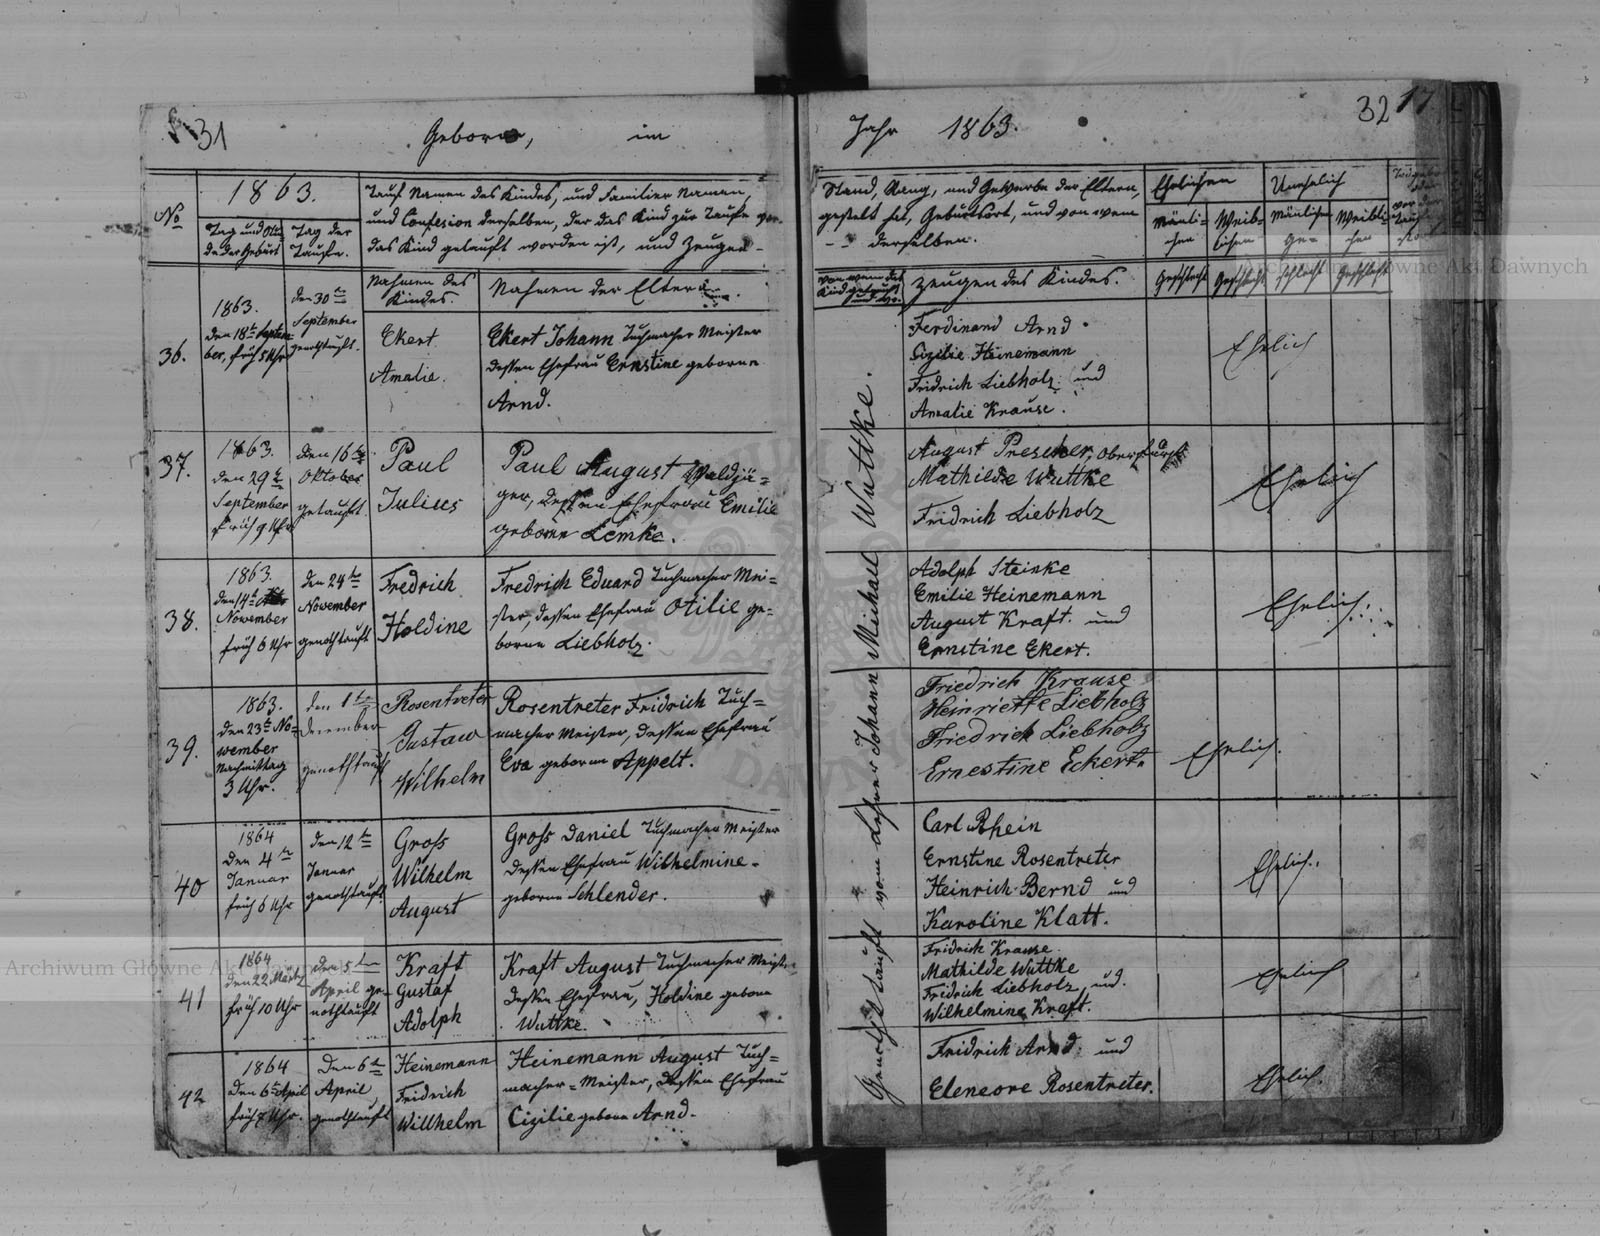 31
Geborne, im
Jahr 1863.
32 17
No
1863.
Tag und Stun-
de der Geburt
Tag der
Taufe.
Tauf Namen des Kindes, und Familien Namen,
und Confesion derselben, der das Kind zur Taufe
das Kind getauft worden ist, und Zeugen
Stand, Rang, und Gewerbe der Eltern,
gestelt hat, Geburtsort, und von wem
derselben.
Ehelichen
Unehelich
Mänli-
chen
Weib-
lichen
Mänlichen
Ge-
Weibli-
chen
Geschlecht
Geschlecht
schlecht
Geschlecht
Nahmen des
Kindes.
Nahmen der Eltern
von wem das
Kind getauft
und wo.
Zeugen des Kindes.
36.
1863.
den 18t Septem
ber, früh 5 Uhr
den 30te
September
genothtauft.
Ekert
Amalie.
Ekert Johann Tuchmacher Meister
dessen Ehefrau Ernstine geborne
Arnd.
Ferdinand Arnd.
Cizilie Heinemann
Fridrich Liebholz und
Amalie Krause.
Ehelich
37.
1863.
den 29te
September
früh 9 Uhr
den 16te
Oktober
getauft.
Paul
Julius
Paul August Waldjä-
ger, dessen Ehefrau Emilie
geborne Lemke.
August Prescher, Oberförster
Mathilde Wuttke
Fridrich Liebholz
Ehelich
38.
1863.
den 14te
November
früh 6 Uhr
den 24te
November
genothtauft
Fredrich
Holdine
Fredrich Eduard Tuchmacher Mei-
ster, dessen Ehefrau Otilie ge-
borne Liebholz.
Adolph Steinke
Emilie Heinemann
August Kraft. und
Ernstine Ekert.
Ehelich.
39.
1863.
den 23te No-
wember
Nachmittag
3 Uhr.
den 1te
December
genothtauft
Rosentreter
Gustaw
Wilhelm
Rosentreter Fridrich Tuch-
macher Meister, dessen Ehefrau
Eva geborne Appelt.
Friedrich Krause
Heinriette Liebholz
Friedrich Liebholz
Ernestine Eckert.
Ehelich.
40
1864
den 4te
Januar
früh 6 Uhr
den 12te
Januar
genothtauft
Gross
Wilhelm
August
Gross Daniel Tuchmacher Meister
dessen Ehefrau Wilhelmine
geborne Schlender.
Carl Rhein
Ernstine Rosentreter
Heinrich Bernd und
Karoline Klatt.
Ehelich.
41
1864
den 22 März
früh 10 Uhr
den 5te
April ge-
nothtauft
Kraft
Gustaf
Adolph
Kraft August Tuchmacher Meist.
dessen Ehefrau, Holdine geborne
Wuttke.
Fridrich Krause
Mathilde Wuttke
Fridrich Liebholz, und
Wilhelmine Kraft.
Ehelich
42
1864
den 6te April
früh 7 Uhr.
den 6te
April
genothtauft
Heinemann
Fridrich
Willhelm
Heinemann August Tuch-
macher-Meister, dessen Ehefrau
Cizilie geborne Arnd.
Fridrich Arnd. und
Eleneore Rosentreter.
Ehelich.
Genothtauft vom Lehrer Johann Michall Wuttke.
Archiwum Główne Akt Dawnych